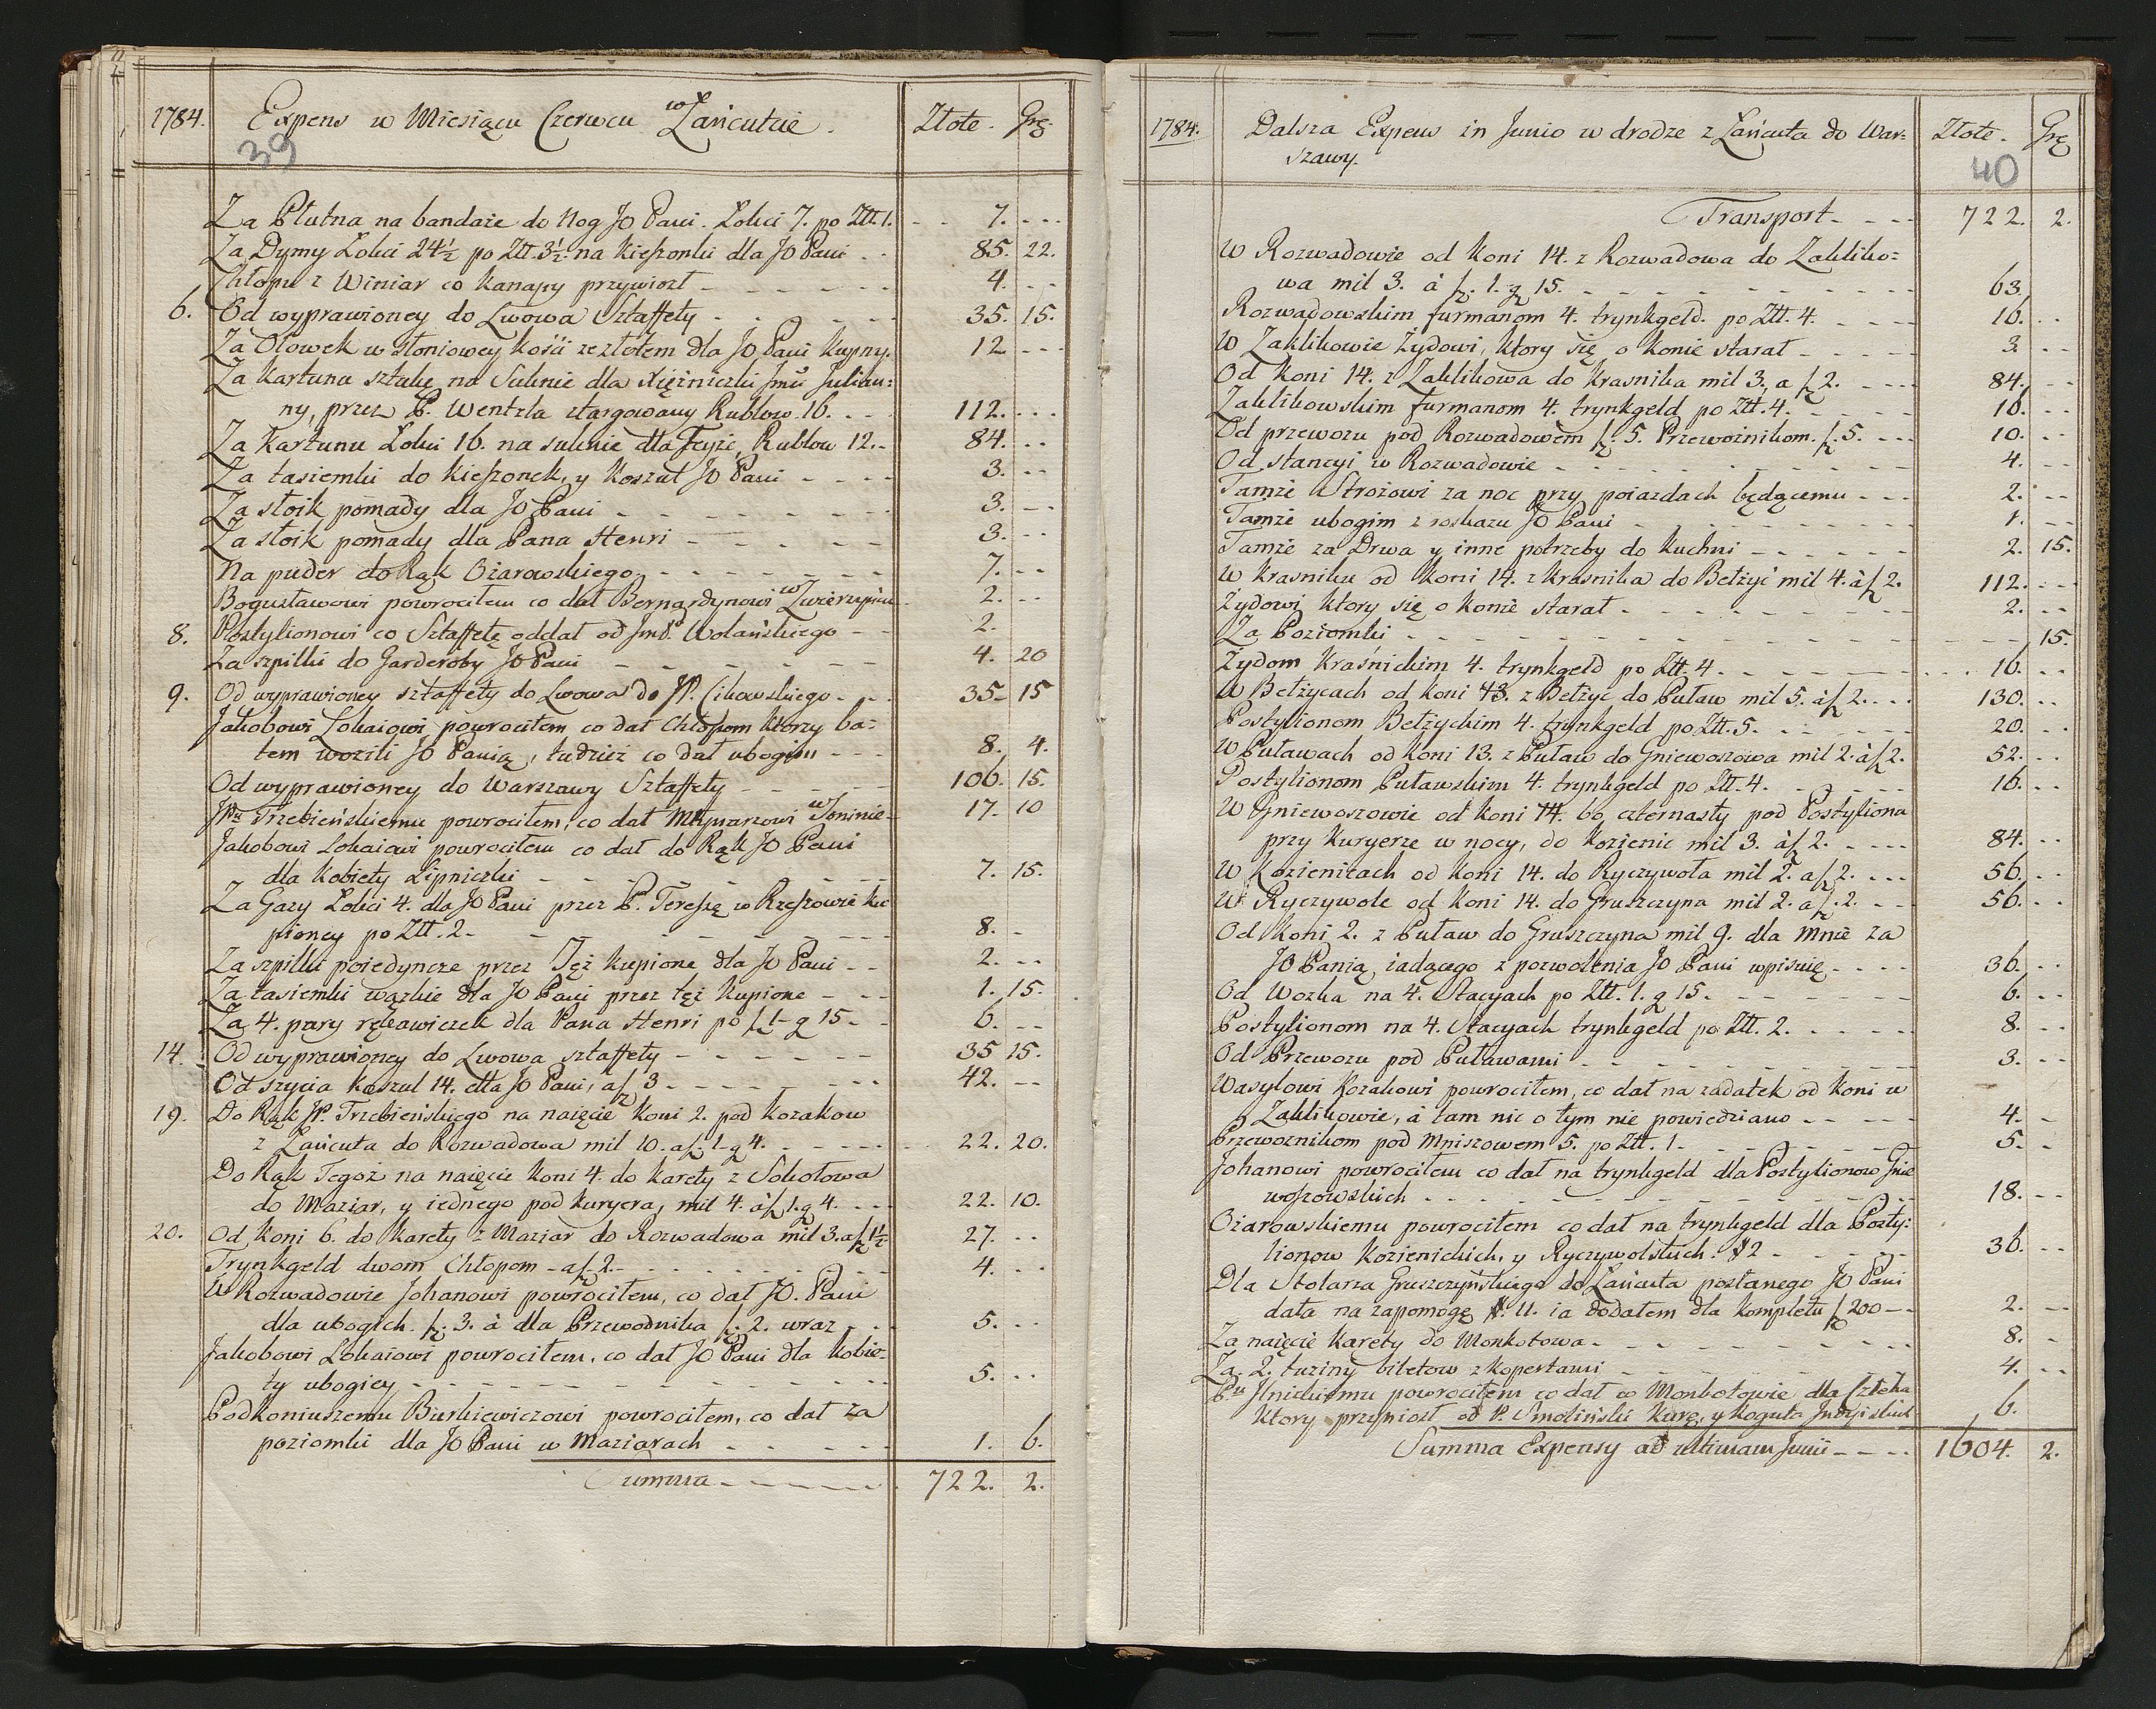 1784. Expens w Miesiącu Czerwcu w Łańcutie. Złote. Grę.
39
Za Płutna na bandaże do Nog JO Pani. Łokci 7. po Złt. 1. - - 7. - - -
Za Dymy Łokci 24½ po Złt. 3½ na Kieszonki dla JO Pani - - 85. 22.
Chłopu z Winiar co Kanapy przywiozł - - - - - - 4. - -
6. Od wyprawioney do Lwowa Sztaffety - - - - - 35. 15.
Za Ołowek w słoniowey Kości ze złotem dla JO Pani kupny. 12 - - -
Za Kartunu sztukę na Suknie dla Xiężniczki Jmci Julian=
ny, przez P. Wentzla stargowany Rublow 16. - - - 112. - - -
Za Kartunu Łokci 16. na suknie dla Teyże, Rublow 12. - 84. - -
Za tasiemki do Kieszonek, y Koszul JO Pani - - - - 3. - -
Za słoik pomady dla JO Pani - - - - - - - - 3. - -
Za słoik pomady dla Pana Henri - - - - - - 3. - -
Na puder do Rąk Ożarowskiego - - - - - - - - 7. - -
Bogusławowi powrociłem co dał Bernardynowi w Zwierzyńcu - 2. - -
8. Postylionowi co Sztaffetę oddał od Jmci Wolańskiego - - 2.
Za szpilki do Garderoby JO Pani - - - - - - - 4. 20
9. Od wyprawioney sztaffety do Lwowa do JP. Cikowskiego - - - 35 - 15
Jakobowi Lokaiowi powrociłem co dał Chłopom ktorzy ba=
tem wozili JO Panią, tudzież co dał ubogim - - - 8. 4.
Od wyprawioney do Warszawy Sztaffety - - - - - 106. 15.
JPu Trzebieńskiemu powrociłem, co dał Młynarzowi w Soninie - 17. 10
Jakobowi Lokaiowi powrociłem co dał do Rąk JO Pani
dla Kobiety Lipniczki - - - - - - - - 7. 15.
Za Gazy Łokci 4. dla JO Pani przez P. Teressę w Rzeszowie ku
pioney po Złt. 2. - - - - - - - - - 8. -
Za szpilki poiedyncze przez Tęż kupione dla JO Pani - - 2. - -
Za tasiemki wązkie dla JO Pani przez tęż kupione - - - 1. 15.
Za 4. pary rękawiczek dla Pana Henri po f 1 - g 15 - - 6. - -
14. Od wyprawioney do Lwowa sztaffety - - - - - - 35 15.
Od szycia Koszul 14. dla JO Pani, a f 3 - - - - - - - 42. - -
19. Do Rąk JP. Trzebieńskiego na naięcie Koni 2. pod Kozakow
z Łańcuta do Rozwadowa mil 10. a f 1 - g 4. - - - - - 22. 20.
Do Rąk Tegoż na naięcie Koni 4. do Karety z Sokołowa
do Maziar, y iednego pod Kuryera, mil 4. à f 1. g 4. - - - 22. 10.
20. Od Koni 6. do Karety z Maziar do Rozwadowa mil 3. a f 1½ 27. - -
Trynkgeld dwom Chłopom - a f. 2. - - - - - - - - 4. - -
W Rozwadowie Johanowi powrociłem, co dał JO. Pani
dla ubogich f. 3. à dla Przewodnika f. 2. wraz - - - 5. - -
Jakobowi Lokaiowi powrociłem, co dał JO Pani dla Kobie-
ty ubogiey - - - - - - - - - - - 5. - -
Podkoniuszemu Bierkiewiczowi powrociłem, co dał za
poziomki dla JO Pani w Maziarach - - - - - 1. 6.
Summa - - - - - - 722. 2.
1784. Dalsza Expens in Junio w drodze z Łańcuta do War= Złote. Grę
szawy.
40
Transport - - - - 722. 2.
W Rozwadowie od Koni 14. z Rozwadowa do Zakliko=
wa mil 3. à f. 1. g 15. - - - - - - - - - 63.
Rozwadowskim furmanom 4. trynkgeld. po Złt. 4. - - - - 16. - -
W Zaklikowie Żydowi, ktory się o Konie starał - - - - - 3. - -
Od Koni 14. z Zaklikowa do Krasnika mil 3. a f 2. - - - - 84. - -
Zaklikowskim furmanom 4. trynkgeld po Złt. 4. - - - - - 16. - -
Od przewozu pod Rozwadowem f. 5. Przewoźnikom. f. 5. - - - 10. - -
Od stancyi w Rozwadowie - - - - - - - - - - 4. - -
Tamże Strożowi za noc przy poiazdach będącemu - - - 2. - -
Tamże ubogim z roskazu JO Pani - - - - - - - - 1. - -
Tamże za Drwa y inne potrzeby do Kuchni - - - - - - 2. 15.
W Krasniku od Koni 14. z Krasnika do Bełżyć mil 4. à f 2. 112. - -
Żydowi ktory się o Konie starał - - - - - - - - - 2. - -
Za Poziomki - - - - - - - - - - - - - 15.
Żydom Kraśnickim 4. trynkgeld po Złt. 4 - - - - - - - 16. - -
W Bełżycach od Koni 13. z Bełżyc do Puław mil 5. à f 2. - - - 130. - -
Postylionom Bełżyckim 4. trynkgeld po Złt. 5. - - - - - 20. - -
W Puławach od Koni 13. z Puław do Gniewoszowa mil 2. à f 2. 52. - -
Postylionom Puławskim 4. trynkgeld po Złt. 4. - - - - - 16. - -
W Gniewoszowie od Koni 14. bo czternasty pod Postyliona
przy Kuryerze w nocy, do Kozienic mil 3. à f 2. - - - - 84. - -
W Kozienicach od Koni 14. do Ryczywoła mil 2. a f 2. - - - 56. - -
W Ryczywole od Koni 14. do Gruszczyna mil 2. a f. 2. - - 56. - -
Od Koni 2. z Puław do Gruszczyna mil 9. dla mnie za
JO Panią iadącego z pozwolenia JO Pani wpisuię - - - - 36. - -
Od Wozka na 4. Stacyach po Złt. 1. g 15. - - - - - - - 6. - -
Postylionom na 4. Stacyach trynkgeld po Złt. 2. - - - - - 8. - -
Od Przewozu pod Puławami - - - - - - - - - 3. - -
Wasylowi Kozakowi powrociłem, co dał na zadatek od Koni w
Zaklikowie, à tam nic o tym nie powiedziano - - - - 4. -
Przewoźnikom pod Mniszowem 5. po Złt. 1 - - - - - - 5. -
Johanowi powrociłem co dał na trynkgeld dla Postylionow Gnie
woszowskich - - - - - - - - - - - - 18. - -
Ożarowskiemu powrociłem co dał na trynkgeld dla Posty=
lionow Kozienickich, y Ryczywolskich. 2 - - - - - 36. - -
Dla Stolarza Gruszczyńskiego do Łańcuta posłanego JO Pani
dała na zapomogę #. 11. ia dodałem dla kompletu f 200 - - 2. - -
Za naięcie Karety do Monkotowa - - - - - - - - - 8. -
Za 2. tuziny biletow z kopertami - - - - - - - - 4. - -
Pu Ilnickiemu powrociłem co dał w Monkotowie dla
Ktory przyniosł od P. Smoliński Kurę, y Koguta Indyiskich 6.
Summa Expensy ad ultimam Junii - - - - 1604. 2.